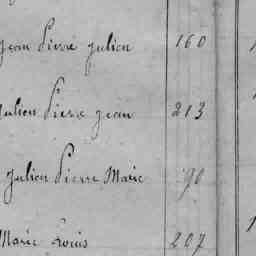 Jean Pierre Julien 160
Julien Pierre Jean 213
Julien Pierre Marie 90
Marie Louis 207